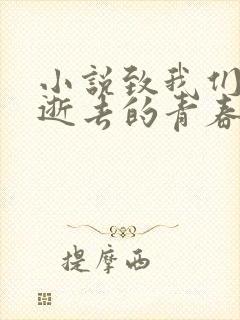 小説致我们
逝去的青春
提摩西